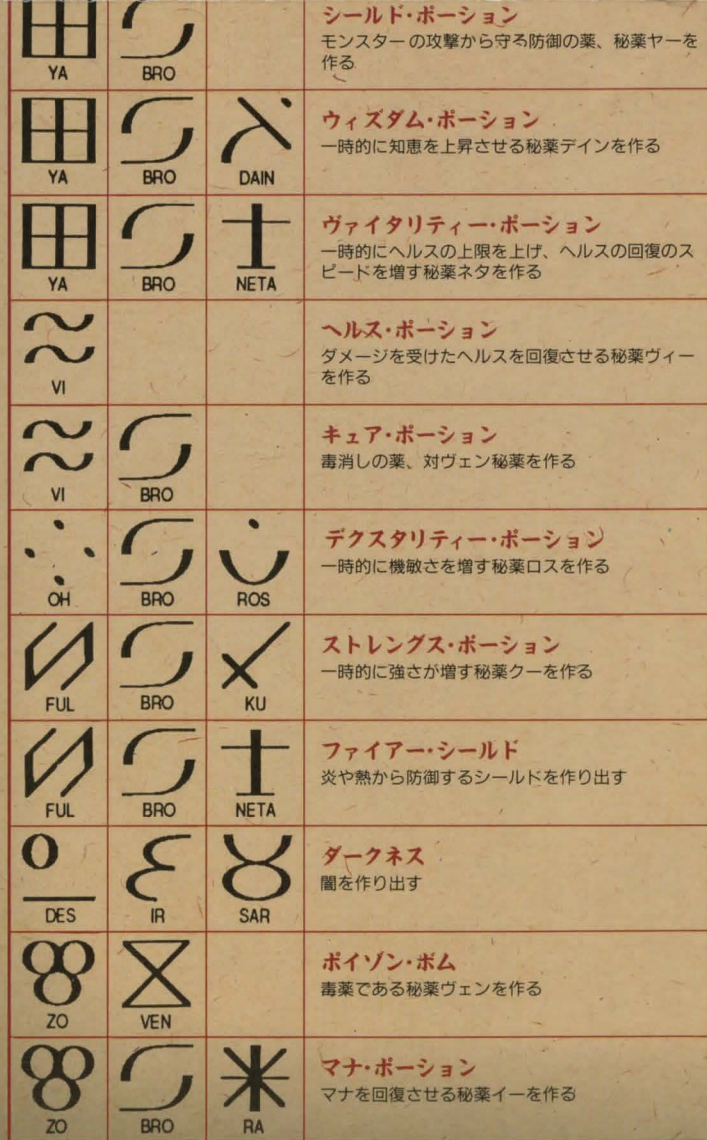 シールド・ポーション
モンスターの攻撃から守る防御の薬、秘薬ヤーを
作る
YA BRO
ウィズダム・ポーション
一時的に知恵を上昇させる秘薬デインを作る
YA BRO DAIN
ヴァイタリティー・ポーション
一時的にヘルスの上限を上げ、ヘルスの回復のス
ピードを増す秘薬ネタを作る
YA BRO NETA
ヘルス・ポーション
ダメージを受けたヘルスを回復させる秘薬ヴィー
を作る
VI
キュア・ポーション
毒消しの薬、対ヴェン秘薬を作る
VI BRO
デクスタリティー・ポーション
一時的に機敏さを増す秘薬ロスを作る
OH BRO ROS
ストレングス・ポーション
一時的に強さが増す秘薬クーを作る
FUL BRO KU
ファイアー・シールド
炎や熱から防御するシールドを作り出す
FUL BRO NETA
ダークネス
闇を作り出す
DES IR SAR
ポイゾン・ボム
毒薬である秘薬ヴェンを作る
ZO VEN
マナ・ポーション
マナを回復させる秘薬イーを作る
ZO BRO RA